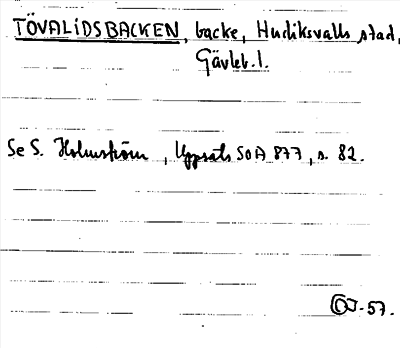 TÖVALIDSBACKEN, backe, Hudiksvalls stad,
Gävleb. l.
Se S. Holmström, Uppsats SOA 877, s. 82.
OJ-57.